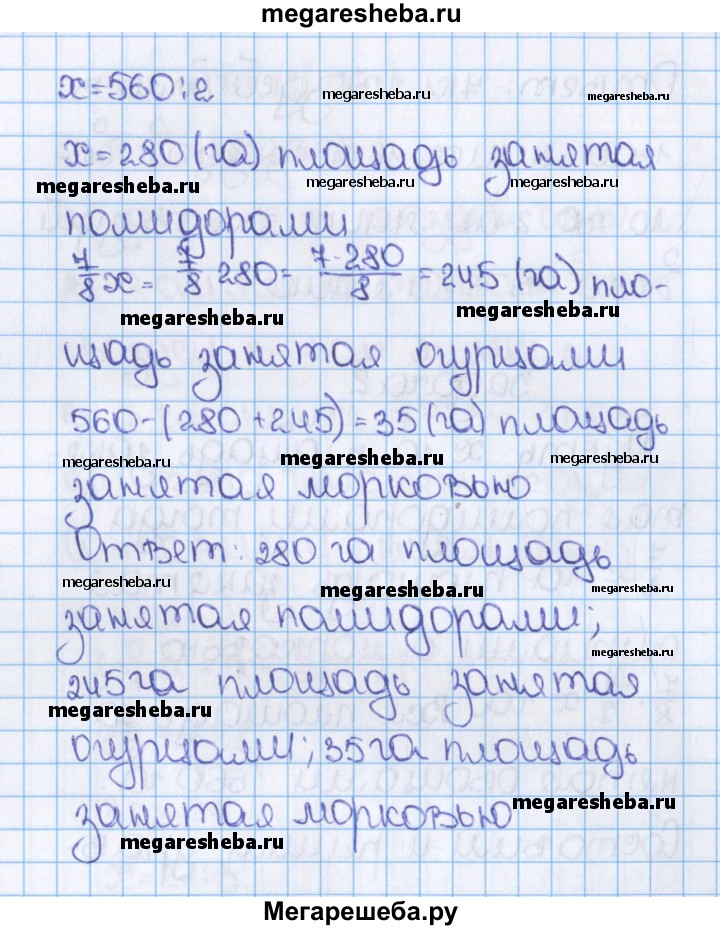 megaresheba.ru
x=560:2
megaresheba.ru megaresheba.ru
x=280 (га) площадь занятая
megaresheba.ru megaresheba.ru megaresheba.ru
помидорами
7/8 x = 7/8 · 280 = 7·280/8 = 245 (га) пло-
megaresheba.ru megaresheba.ru
щадь занятая огурцами
560-(280+245)=35 (га) площадь
megaresheba.ru megaresheba.ru megaresheba.ru
занятая морковью
Ответ: 280 га площадь
megaresheba.ru megaresheba.ru megaresheba.ru
занятая помидорами;
megaresheba.ru
245 га площадь занятая
megaresheba.ru
огурцами; 35 га площадь
megaresheba.ru
занятая морковью
megaresheba.ru
Мегарешеба.ру